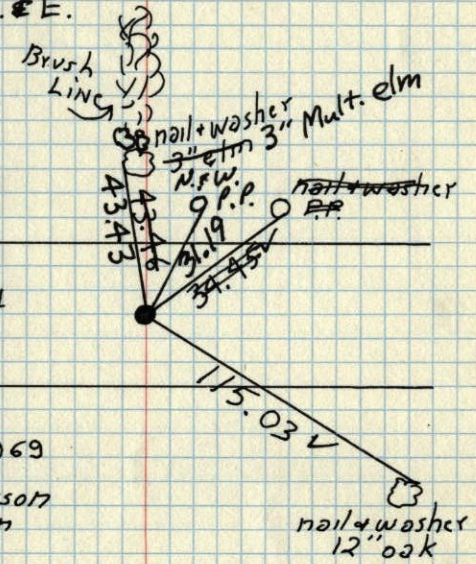 . & E.
Brush
Line
nail + washer
3" elm 3" Mult. elm
N. & W.
P.P.
nail + washer
P.P.
43.43
43.46
31.19
34.45 ✓
115.03 ✓
69
son
nail & washer
12" oak